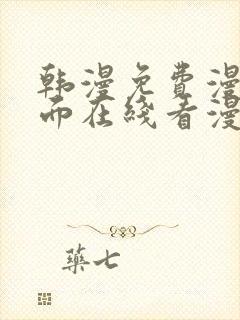 韩漫免费漫
而在线看漫
药七